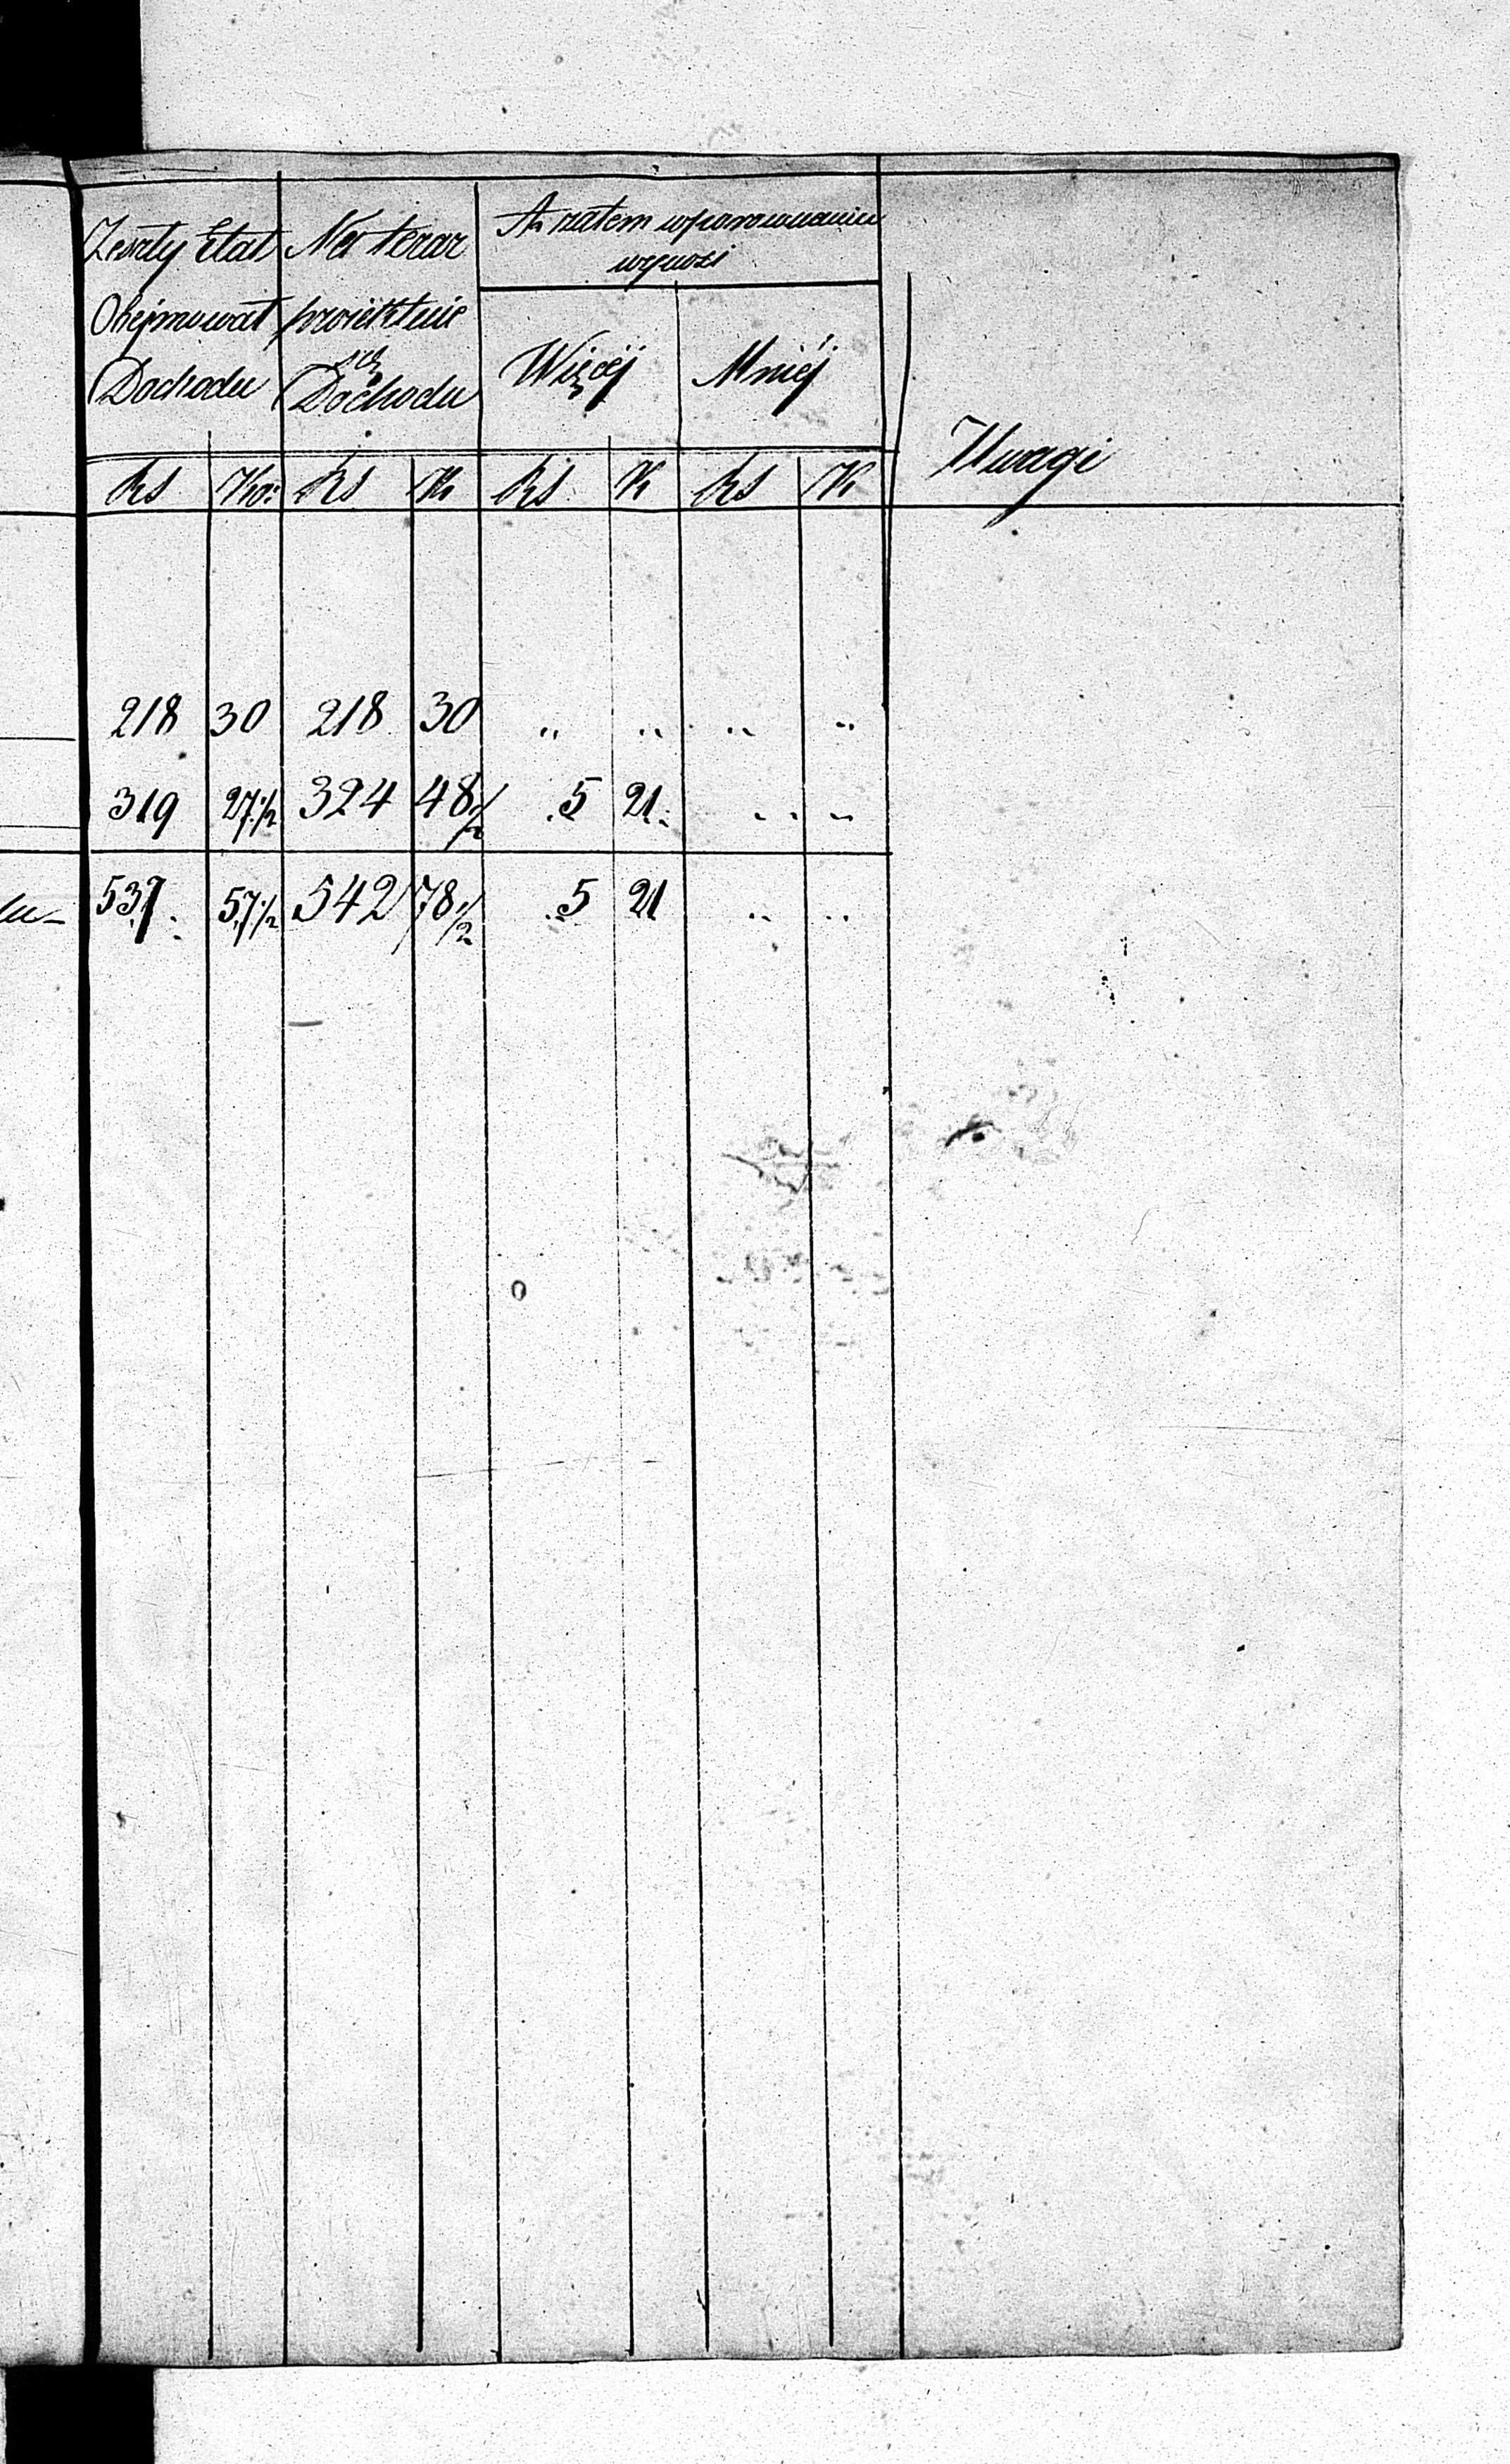 Zeszły Etat
Obejmował
Dochodu
Na teraz
proiektuie
się
Dochodu
A zatem w porownaniu
wynosi
Więcej
Mniej
Uwagi
Rs Ko: Rs K Rs K Rs K
218 30 218 30 " " " "
319 27 1/2 324 48 1/2 5 21 " "
537 57 1/2 542 78 1/2 5 21 " "